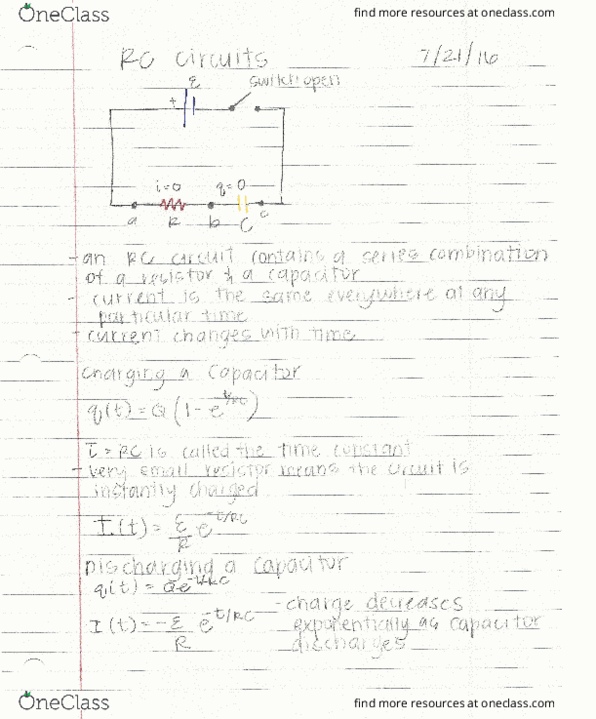 OneClass
find more resources at oneclass.com
RC Circuits 7/21/16
ε switch open
+
i=0 q=0
a R b C c
- an RC circuit contains a series combination
of a resistor & a capacitor
- current is the same everywhere at any
particular time
- current changes with time
Charging a Capacitor
q(t) = Q (1 - e^-t/RC)
τ = RC is called the time constant
- very small resistor means the circuit is
instantly charged
I(t) = ε/R e^-t/RC
Discharging a Capacitor
q(t) = Qe^-t/RC
- charge decreases
I(t) = -ε/R e^-t/RC exponentially as capacitor
discharges
OneClass
find more resources at oneclass.com